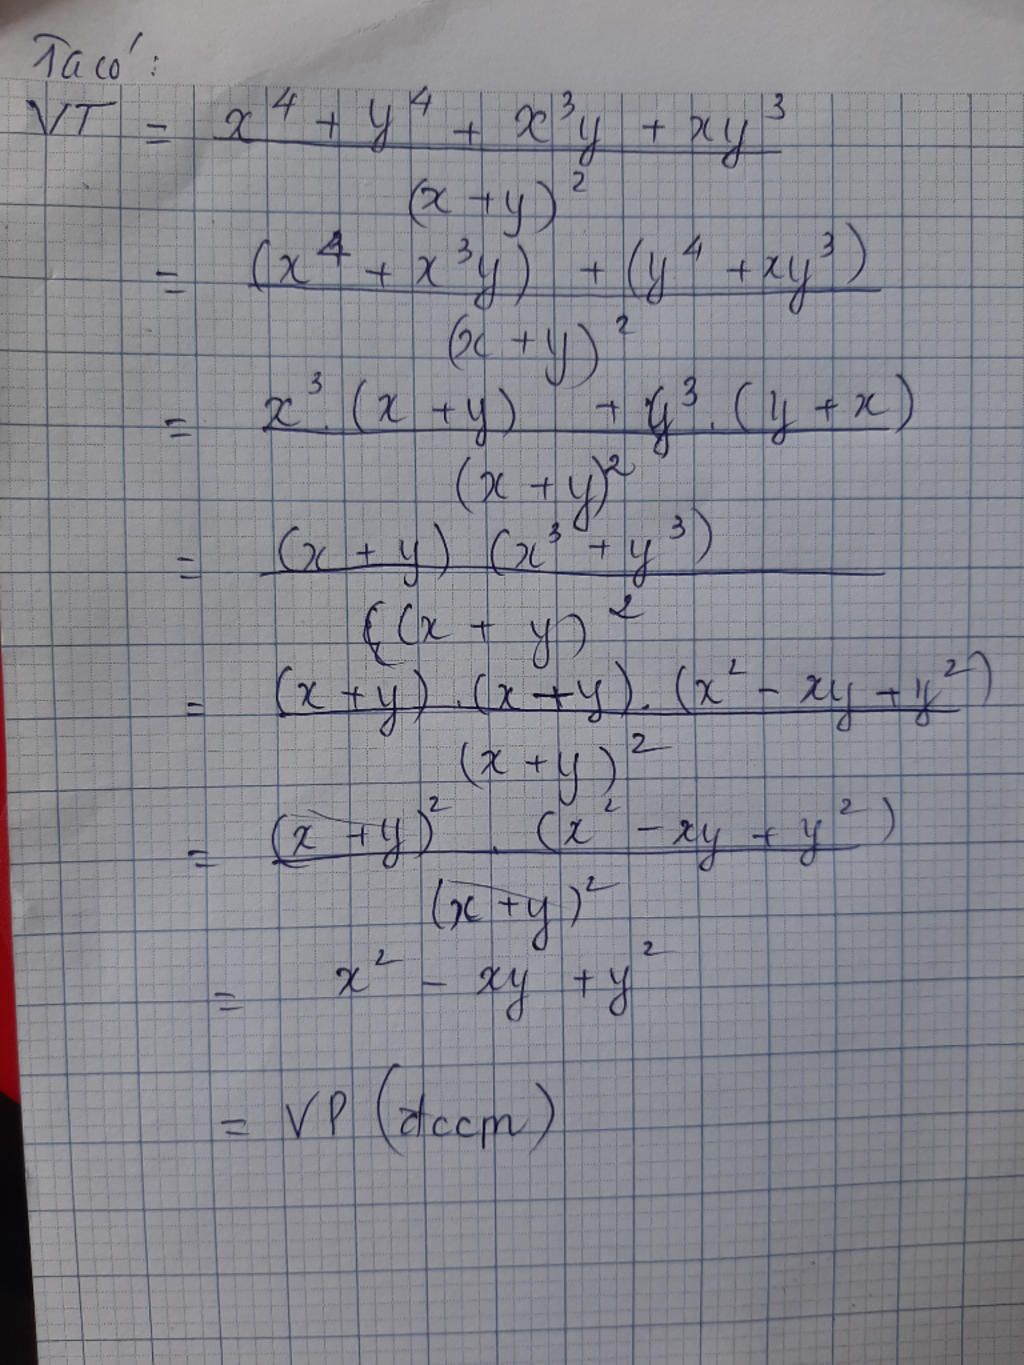 Ta có:
VT = x⁴ + y⁴ + x³y + xy³
(x + y)²
= (x⁴ + x³y) + (y⁴ + xy³)
(x + y)²
= x³.(x + y) + y³.(y + x)
(x + y)²
= (x + y) (x³ + y³)
((x + y)²
= (x + y).(x + y).(x² - xy + y²)
(x + y)²
= (x + y)² . (x² - xy + y²)
(x + y)²
= x² - xy + y²
= VP (đccm)